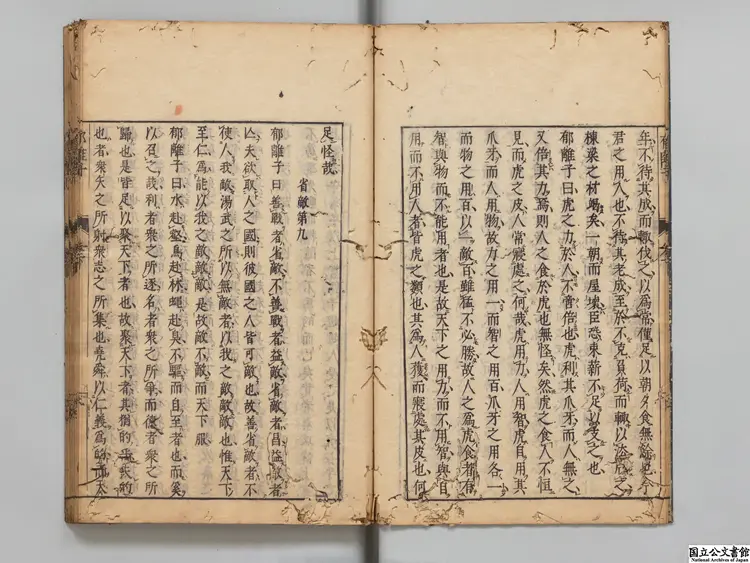 年不待其成而輒伐之以為常僅足以朝夕食無餘也今
君之用人也不待其老成至於不克負荷而輒以法之
棟梁之材竭矣一朝而屋壞臣恐束薪不足以支之也
郁離子曰虎之力於人不啻倍也虎利其爪牙而人無之
又倍其力焉則人之食於虎也無怪矣然虎之食人不恒
見而虎之皮人常寢處之何哉虎用力人用智虎自用其
爪牙而人用物故力之用一而智之用百爪牙之用各一
而物之用百以一敵百雖猛不必勝故人之為虎食者有
智與物而不能用者也是故天下之用力而不用智與自
用而不用人者皆虎之類也其為人獲而寢處其皮也何
足怪哉
省敵第九
郁離子曰善戰者省敵不善戰者益敵省敵者昌益敵者
亾夫欲取人之國則彼國之人皆可敵也故善省敵者不
使人我敵湯武之所以無敵者以我之敵敵敵也惟天下
至仁為能以我之敵敵敵是故敵不敵而天下服
郁離子曰水赴壑鳥赴林蠅赴臭不驅而自至者也而奚
以召之哉利者衆之所逐名者衆之所爭而德者衆之所
歸也是皆足以聚天下者也故聚天下者其猶的乎夫的
也者衆矢之所射衆志之所集也堯舜以仁義為的而天
郁離子
国立公文書館
National Archives of Japan